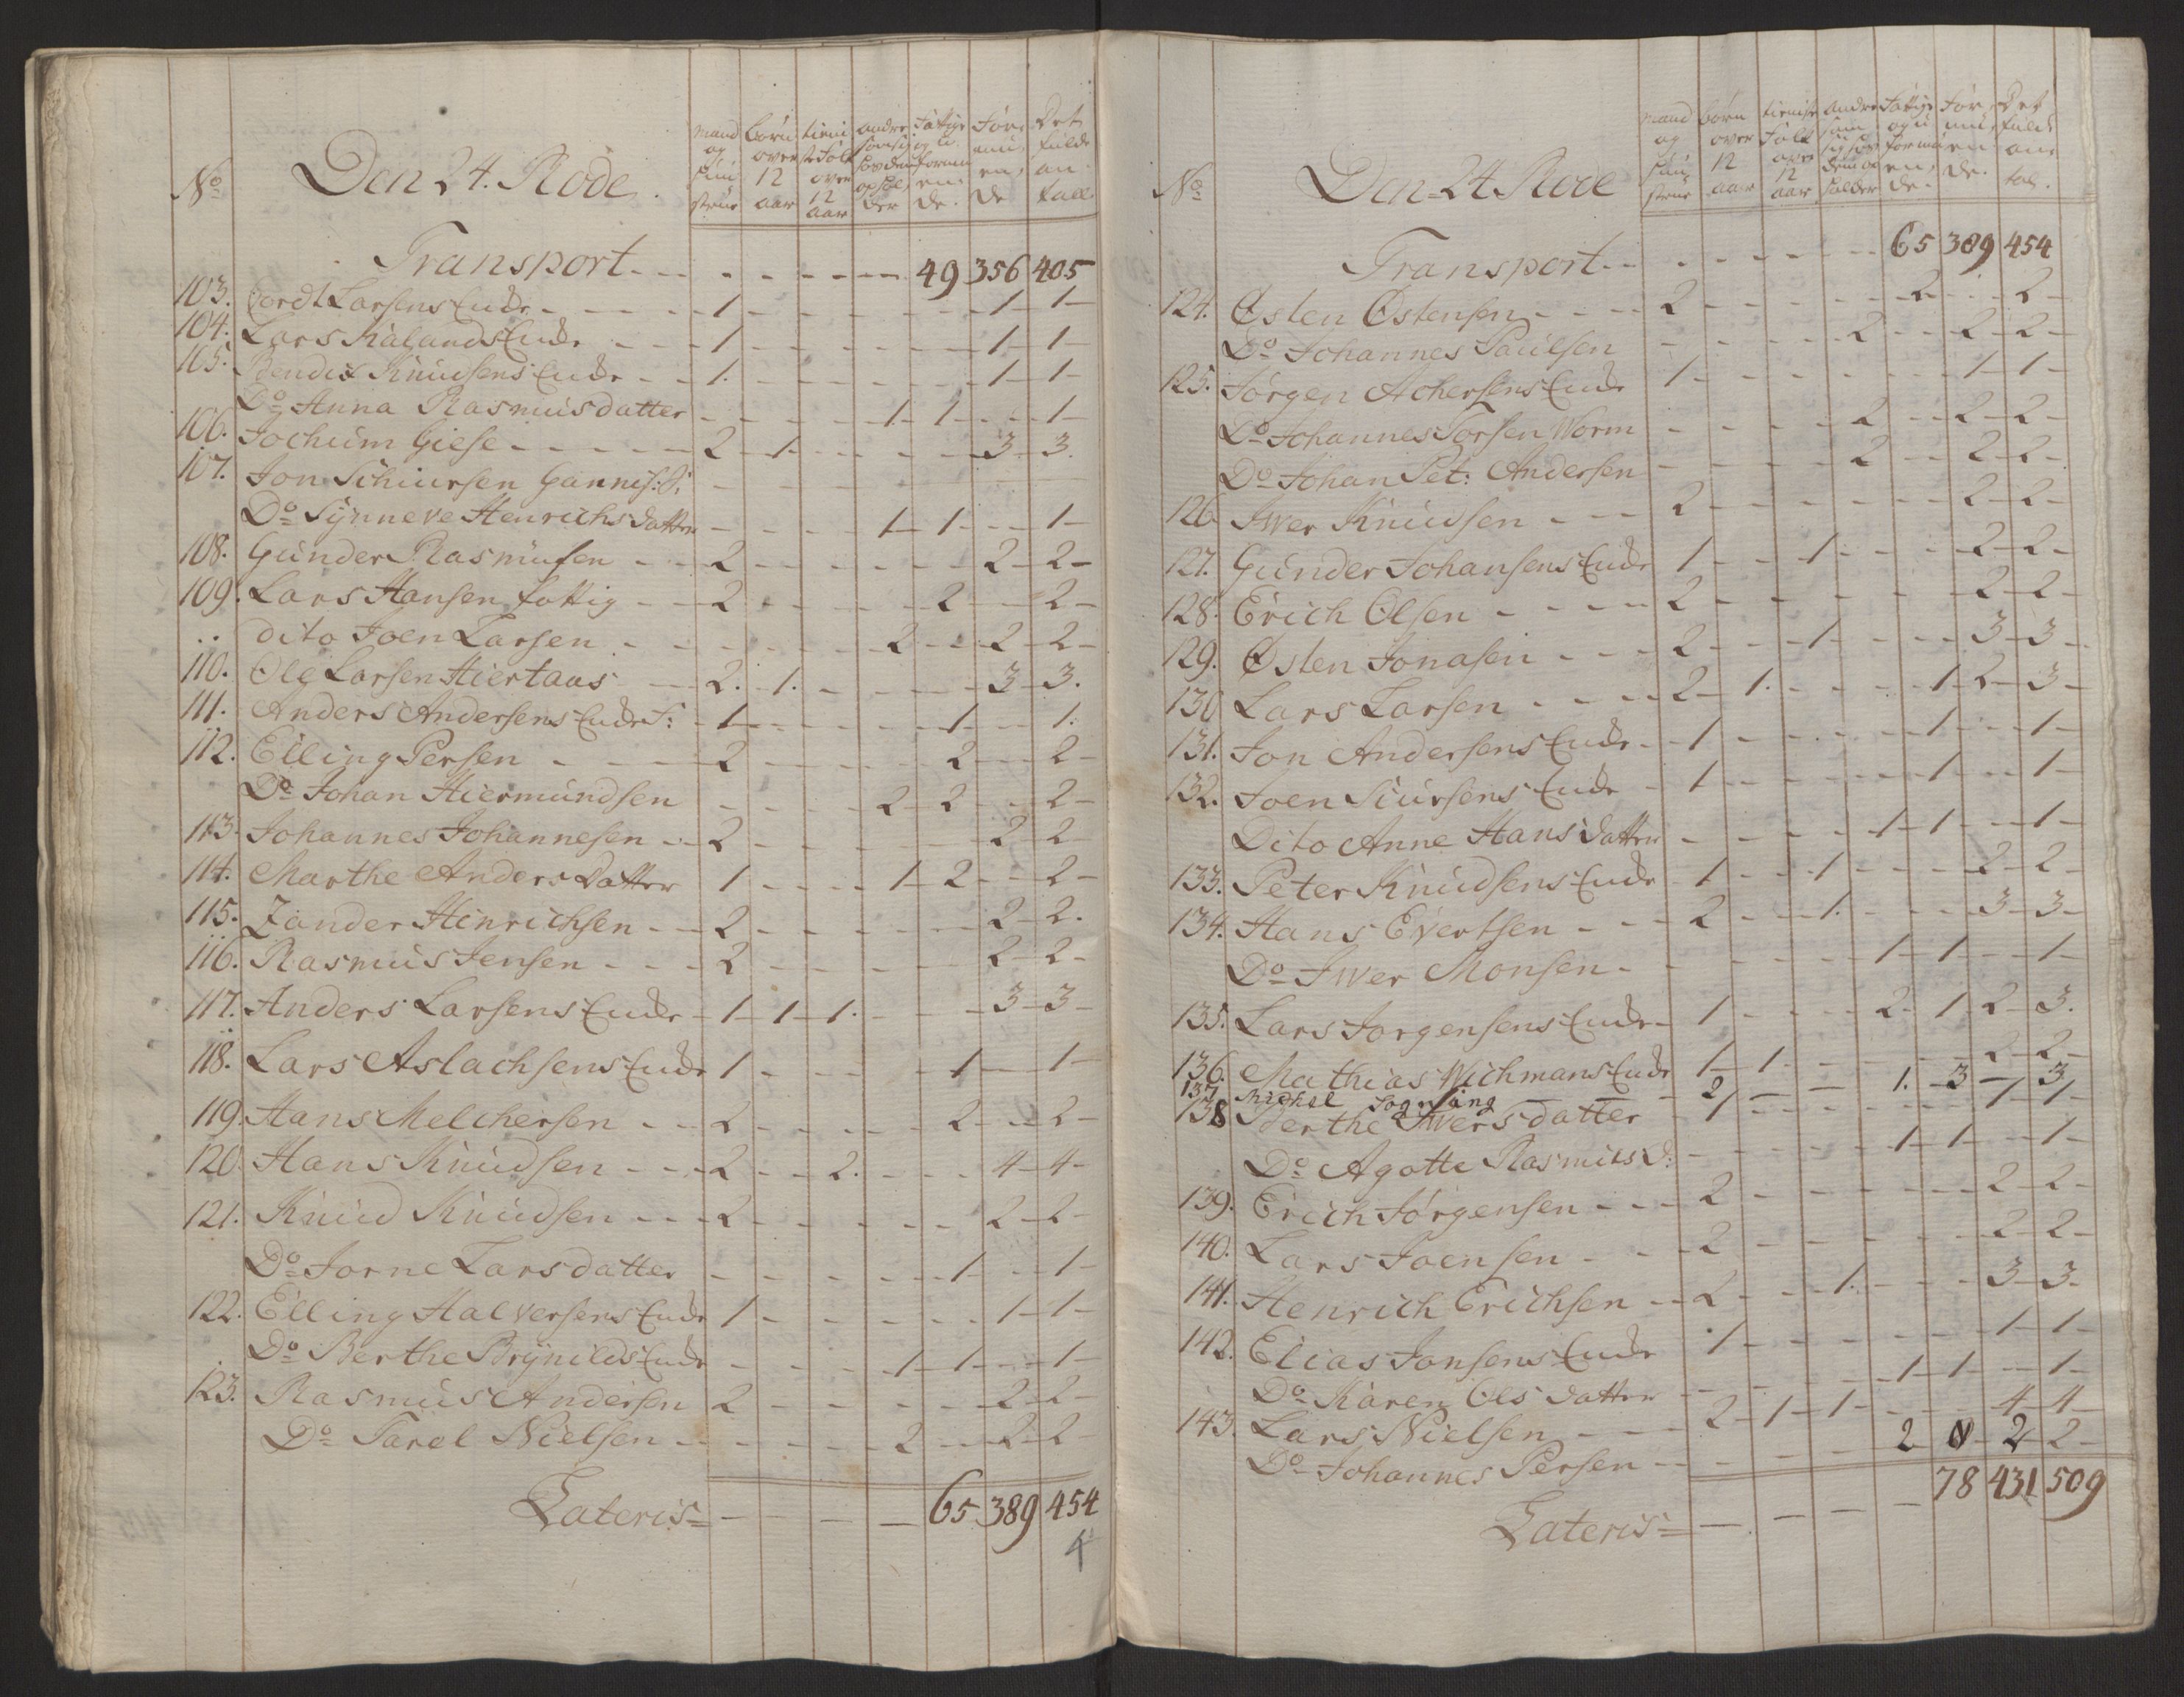 No Den 24. Rode. mand og hustrue børn over 12 aar tieniste Folk over 12 aar andre Fattige og u formuende Formuende Det fulde antall.
Transport - - - - - - 49 356 405
103. Cordt Larsens Enke - - 1 - - - - 1 - 1 -
104. Lars Kalands Enke - - 1 - - - - 1 - 1 -
105. Bendix Knudsens Enke - - 1. - - - - 1 - 1 -
Do Anna Rasmusdatter - - - - 1 - 1 - - 1 -
106. Jochum Giese - - - 2 - 1 - - - 3 - 3.
107. Jon Schiursen
Do Synneve Henrichsdatter - - - - 1 - 1 - - 1 -
108. Gunder Rasmusen - - 2 - - - - 2 - 2 -
109. Lars Hansen fattig - - 2 - - - 2 - - 2 -
dito Joen Larsen - - - - 2 - - 2 - 2 -
110. Ole Larsen Hiertaas - 2. - 1. - - - 3 - 3.
111. Anders Andersens Enke F: - 1 - - - - 1 - - 1.
112. Elling Persen - - - 2 - - - 2 - - 2 -
Do Johan Hiermundsen - - - - 2 - 2 - - 2 -
113. Johannes Johannesen - - 2 - - - - 2 - 2 -
114. Marthe Anders Datter 1 - - - 1 - 2 - - 2 -
115. Zander Hinrichsen - - 2 - - - - 2 - 2.
116. Rasmus Jensen - - - 2 - - - - 2 - 2 -
117. Anders Larsens Enke - 1 - 1 - 1. - - 3 - 3 -
118. Lars Aslachsens Enke 1 - - - - 1 - - 1 -
119. Hans Melchersen - - 2 - - - - 2 - - 2 -
120. Hans Knudsen - - - 2 - - 2. - - 4 - 4 -
121. Knud Knudsen - - - 2 - - - - 2 - 2 -
Do Jorne Larsdatter - - - - - 1 - - 1 -
122. Elling Halversens Enke 1 - - - - - 1 - 1 -
Do Berthe Brynilds Enke - - - - 1 - 1 - - 1 -
123. Rasmus Andersen 2 - - - - - 2 - 2 -
Do Tarel Nielsen - - - - 2 - - 2 - 2 -
Lateris = - - - - 65 389 454
4
No Den 24 Rode mand og hustrue børn over 12 aar tieniste Folk over 12 aar Andre Fattige og u formuende Formuende Det fulde antal.
Transport - - - - - - 65 389 454
124. Østen Østensen - - - 2 - - - - 2 - - 2 -
Do Johannes Paulsen - - - - 2 - - 2 - 2 -
125. Jørgen Achersens Enke 1 - - - - - 1 - 1 -
Do Johannes Torsen Worm - - - - 2 - - 2 - 2 -
Do Johan Pet: Andersen - - - - 2 - - 2 - 2 -
126. Iver Knudsen - - - 2 - - - - - 2 - 2 -
127. Gunder Johansens Enke 1 - - 1 - - - 2 - 2 -
128. Erich Olsen - - - - 2 - - - - 2 - 2 -
129. Østen Jonasen - - - 2 - - 1 - - - 3 - 3 -
130 Lars Larsen - - - - 2 - 1. - - - 1 - 2 - 3 -
131. Jon Andersens Enke - - 1 - - - - 1 - - 1 -
132. Joen Siursens Enke - 1 - - - - 1 - - 1 -
Dito Anne Hans datter - - - - 1 - 1 - - 1 -
133. Peter Knudsens Enke - 1 - - 1 - - - 2 - 2 -
134. Hans Evertsen - - - 2 - - 1. - - - 3 - 3 -
Do Iver Monsen - - - - - 1 - 1 - - 1 -
135. Lars Jorgensens Enke - 1 - - - 2. - 1 2 - 3.
136. Mathias Wichmans Enke 1 - 1 - - - - 2 - 2 -
137. Michel Sogning - 2 - - 1. - 3 - 3
138 Berthe Iversdatter 1 - - - - - 1 - 1 -
Do Agotte Rasmus D: - - - - 1 - 1 - - 1 -
139. Erich Jørgensen - - - 2 - - - - - 2 - 2 -
140. Lars Joensen - - - 2 - - - - - 2 - 2 -
141. Henrich Erichsen - - 2 - - 1. - - - 3 - 3 -
142. Elias Jonsens Enke 1 - - - - - 1 - 1 -
Do Karen Ols datter - - - - 1 - 1 - - 1 -
143. Lars Nielsen - - - 2 - 1 - 1 - - - 4 - 4 -
Do Johannes Persen - - - - 2 0 - 2 2 -
Lateris = - - - - 78 431 509